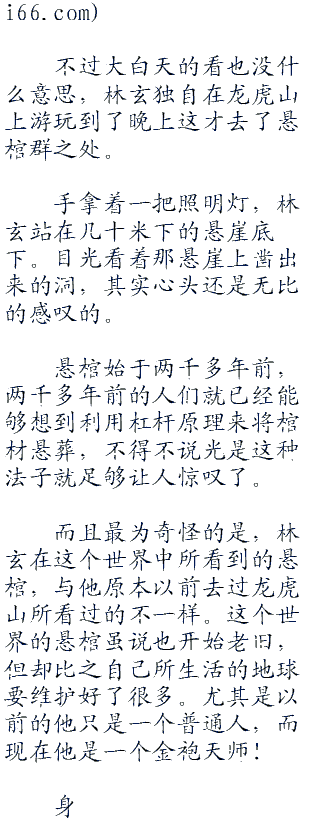 i66.com)
不过大白天的看也没什
么意思，林玄独自在龙虎山
上游玩到了晚上这才去了悬
棺群之处。
手拿着一把照明灯，林
玄站在几十米下的悬崖底
下。目光看着那悬崖上凿出
来的洞，其实心头还是无比
的感叹的。
悬棺始于两千多年前，
两千多年前的人们就已经能
够想到利用杠杆原理来将棺
材悬葬，不得不说光是这种
法子就足够让人惊叹了。
而且最为奇怪的是，林
玄在这个世界中所看到的悬
棺，与他原本以前去过龙虎
山所看过的不一样。这个世
界的悬棺虽说也开始老旧，
但却比之自己所生活的地球
要维护好了很多。尤其是以
前的他只是一个普通人，而
现在他是一个金袍天师！
身